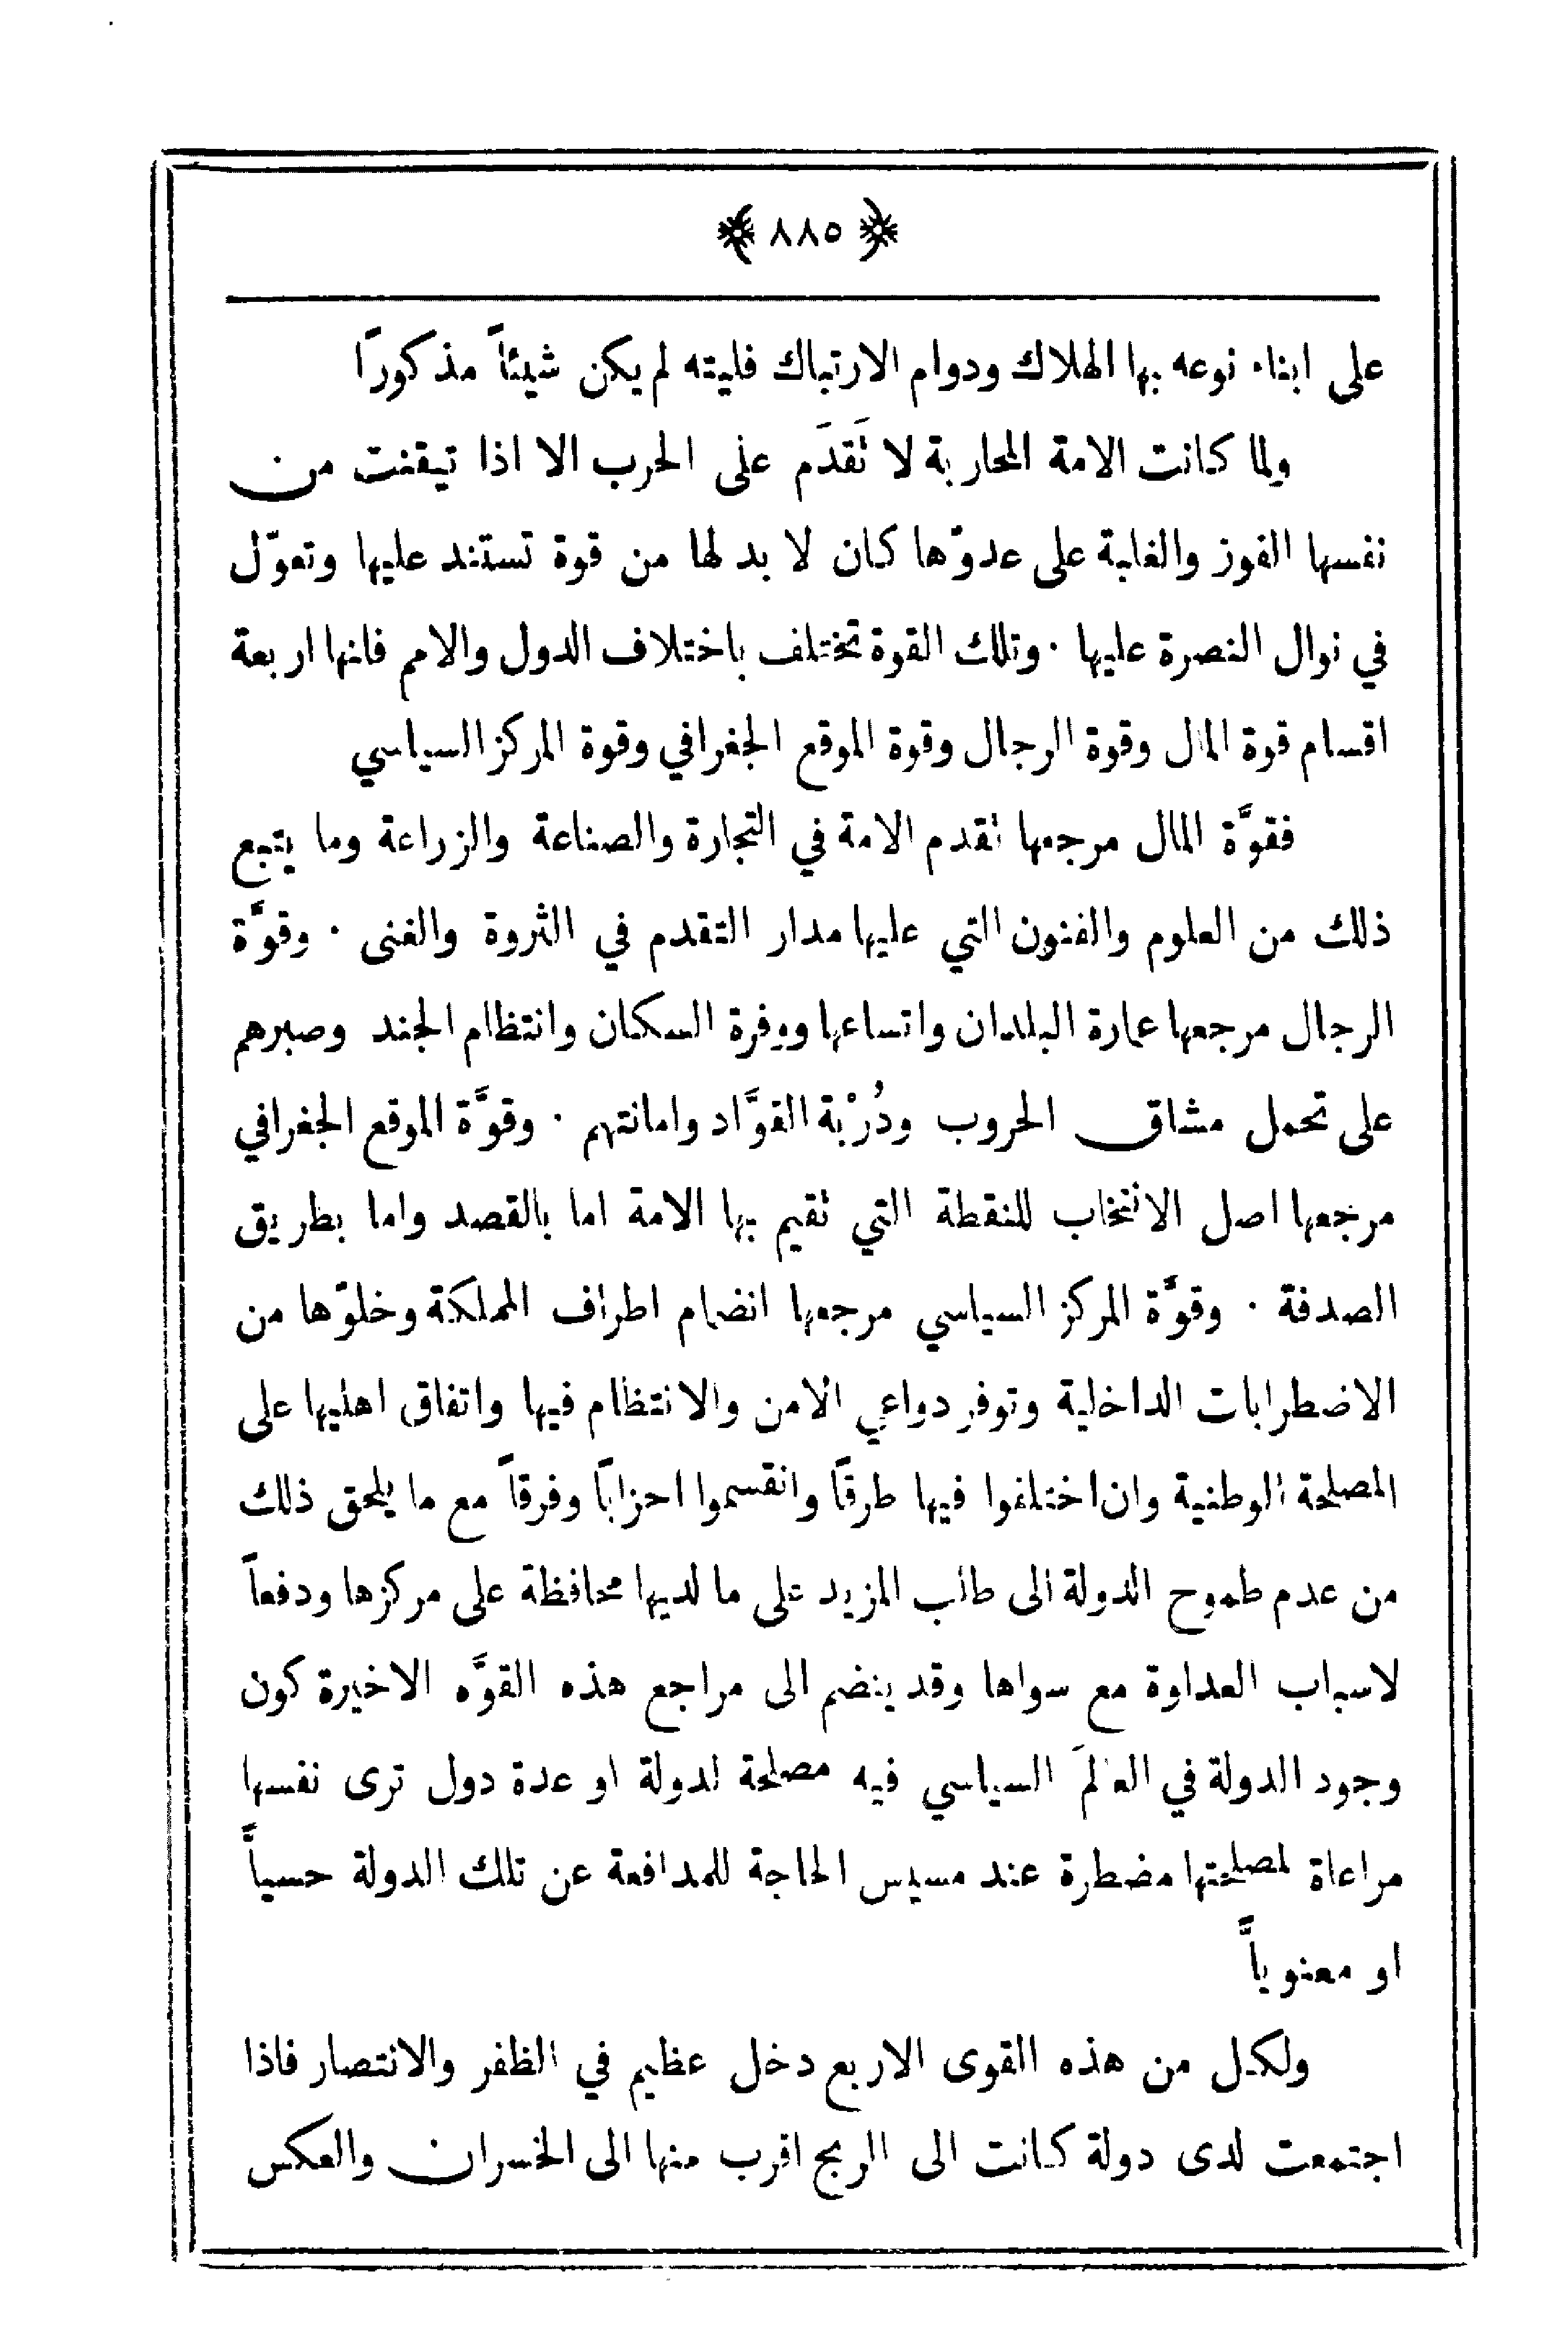 ﴿ ٨٨٥ ﴾
على ابناء نوعه بها الهلاك ودوام الارتباك فليته لم يكن شيئاً مذكورًا
ولما كانت الامة المحاربة لا تَقدَم على الحرب الا اذا تيقنت من
نفسها الفوز والغلبة على عدوّها كان لا بد لها من قوة تستند عليها وتعوّل
في نوال النصرة عليها · وتلك القوة تختلف باختلاف الدول والامم فانها اربعة
اقسام قوة المال وقوة الرجال وقوة الموقع الجغرافي وقوة المركز السياسي
فقوَّة المال مرجعها تقدم الامة في التجارة والصناعة والزراعة وما يتبع
ذلك من العلوم والفنون التي عليها مدار التقدم في الثروة والغنى · وقوَّة
الرجال مرجعها عمارة البلدان واتساعها ووفرة السكان وانتظام الجند وصبرهم
على تحمل مشاق الحروب ودُرْبة القوَّاد وامانتهم · وقوَّة الموقع الجغرافي
مرجعها اصل الانتخاب للنقطة التي تقيم بها الامة اما بالقصد واما بطريق
الصدفة · وقوَّة المركز السياسي مرجعها انضمام اطراف المملكة وخلوّها من
الاضطرابات الداخلية وتوفر دواعي الامن والانتظام فيها واتفاق اهليها على
المصلحة الوطنية وان اختلفوا فيها طرقًا وانقسموا احزابًا وفرقاً مع ما يلحق ذلك
من عدم طموح الدولة الى طلب المزيد على ما لديها محافظة على مركزها ودفعاً
لاسباب العداوة مع سواها وقد ينضم الى مراجع هذه القوَّه الاخيرة كون
وجود الدولة في العالمَ السياسي فيه مصلحة لدولة او عدة دول ترى نفسها
مراعاة لمصلحتها مضطرة عند مسيس الحاجة للمدافعة عن تلك الدولة حسياًّ
او معنوياًّ
ولكل من هذه القوى الاربع دخل عظيم في الظفر والانتصار فاذا
اجتمعت لدى دولة كانت الى الربح اقرب منها الى الخسران والعكس